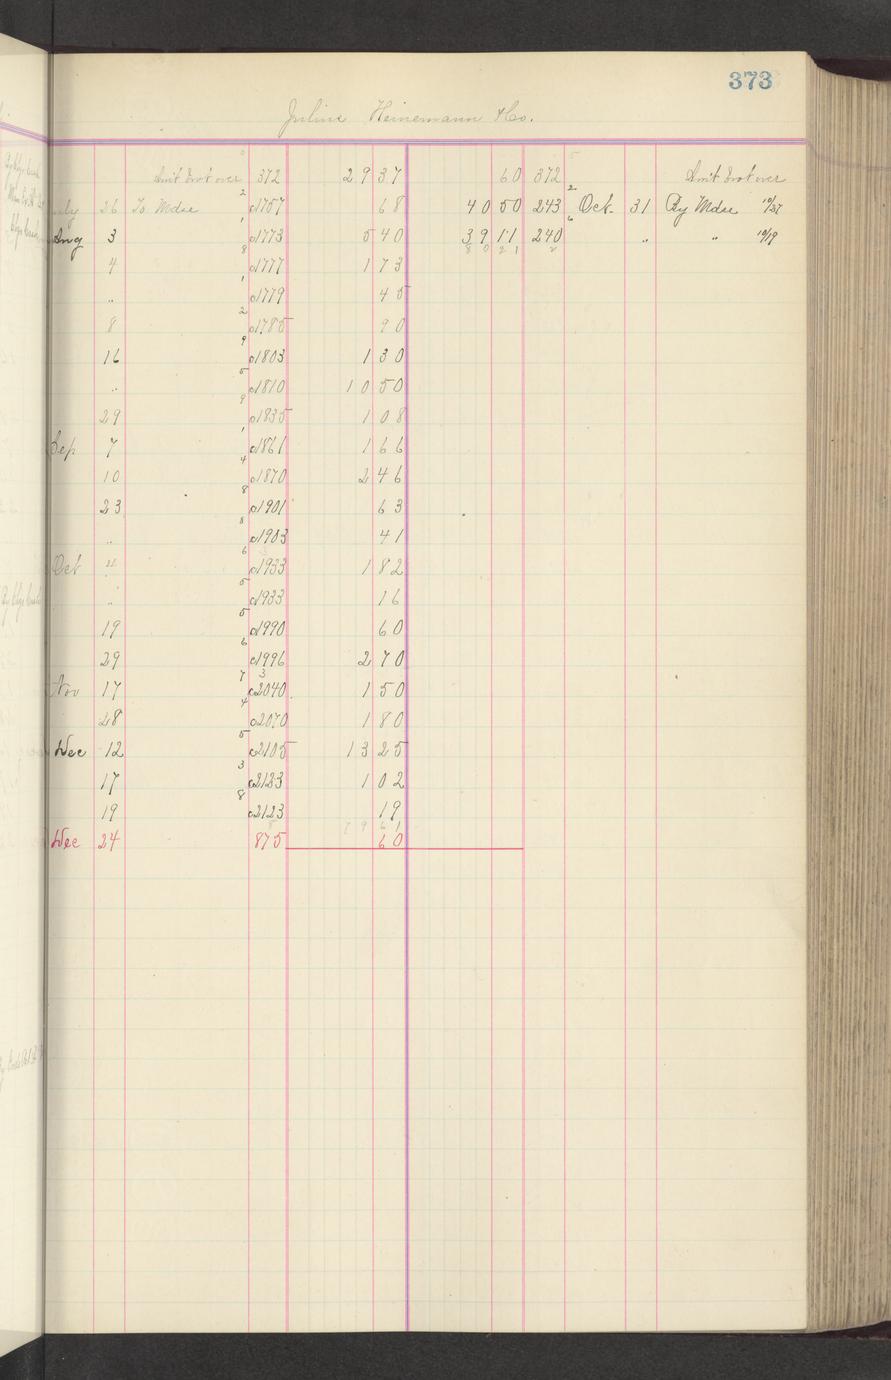 373
Julius Heinemann & Co.
Am't Brot over 372 29 37 60 372 Am't Brot over
July 26 To Mdse c1757 68 40 50 243 Oct. 31 By Mdse 10/27
Aug 3 c1773 5 40 39 11 240 " " 10/19
4 c1777 1 73 80 21
" c1779 45
8 c1785 90
16 c1803 1 30
" c1810 10 50
29 c1835 1 08
Sep 7 c1861 1 66
10 c1870 2 46
23 c1901 63
" c1903 41
Oct 4 c1933 1 82
" c1933 16
19 c1990 60
29 c1996 2 70
Nov 17 c2040 1 50
28 c2070 1 80
Dec 12 c2105 13 25
17 c2123 1 02
19 c2123 19
79 61
Dec 24 875 60